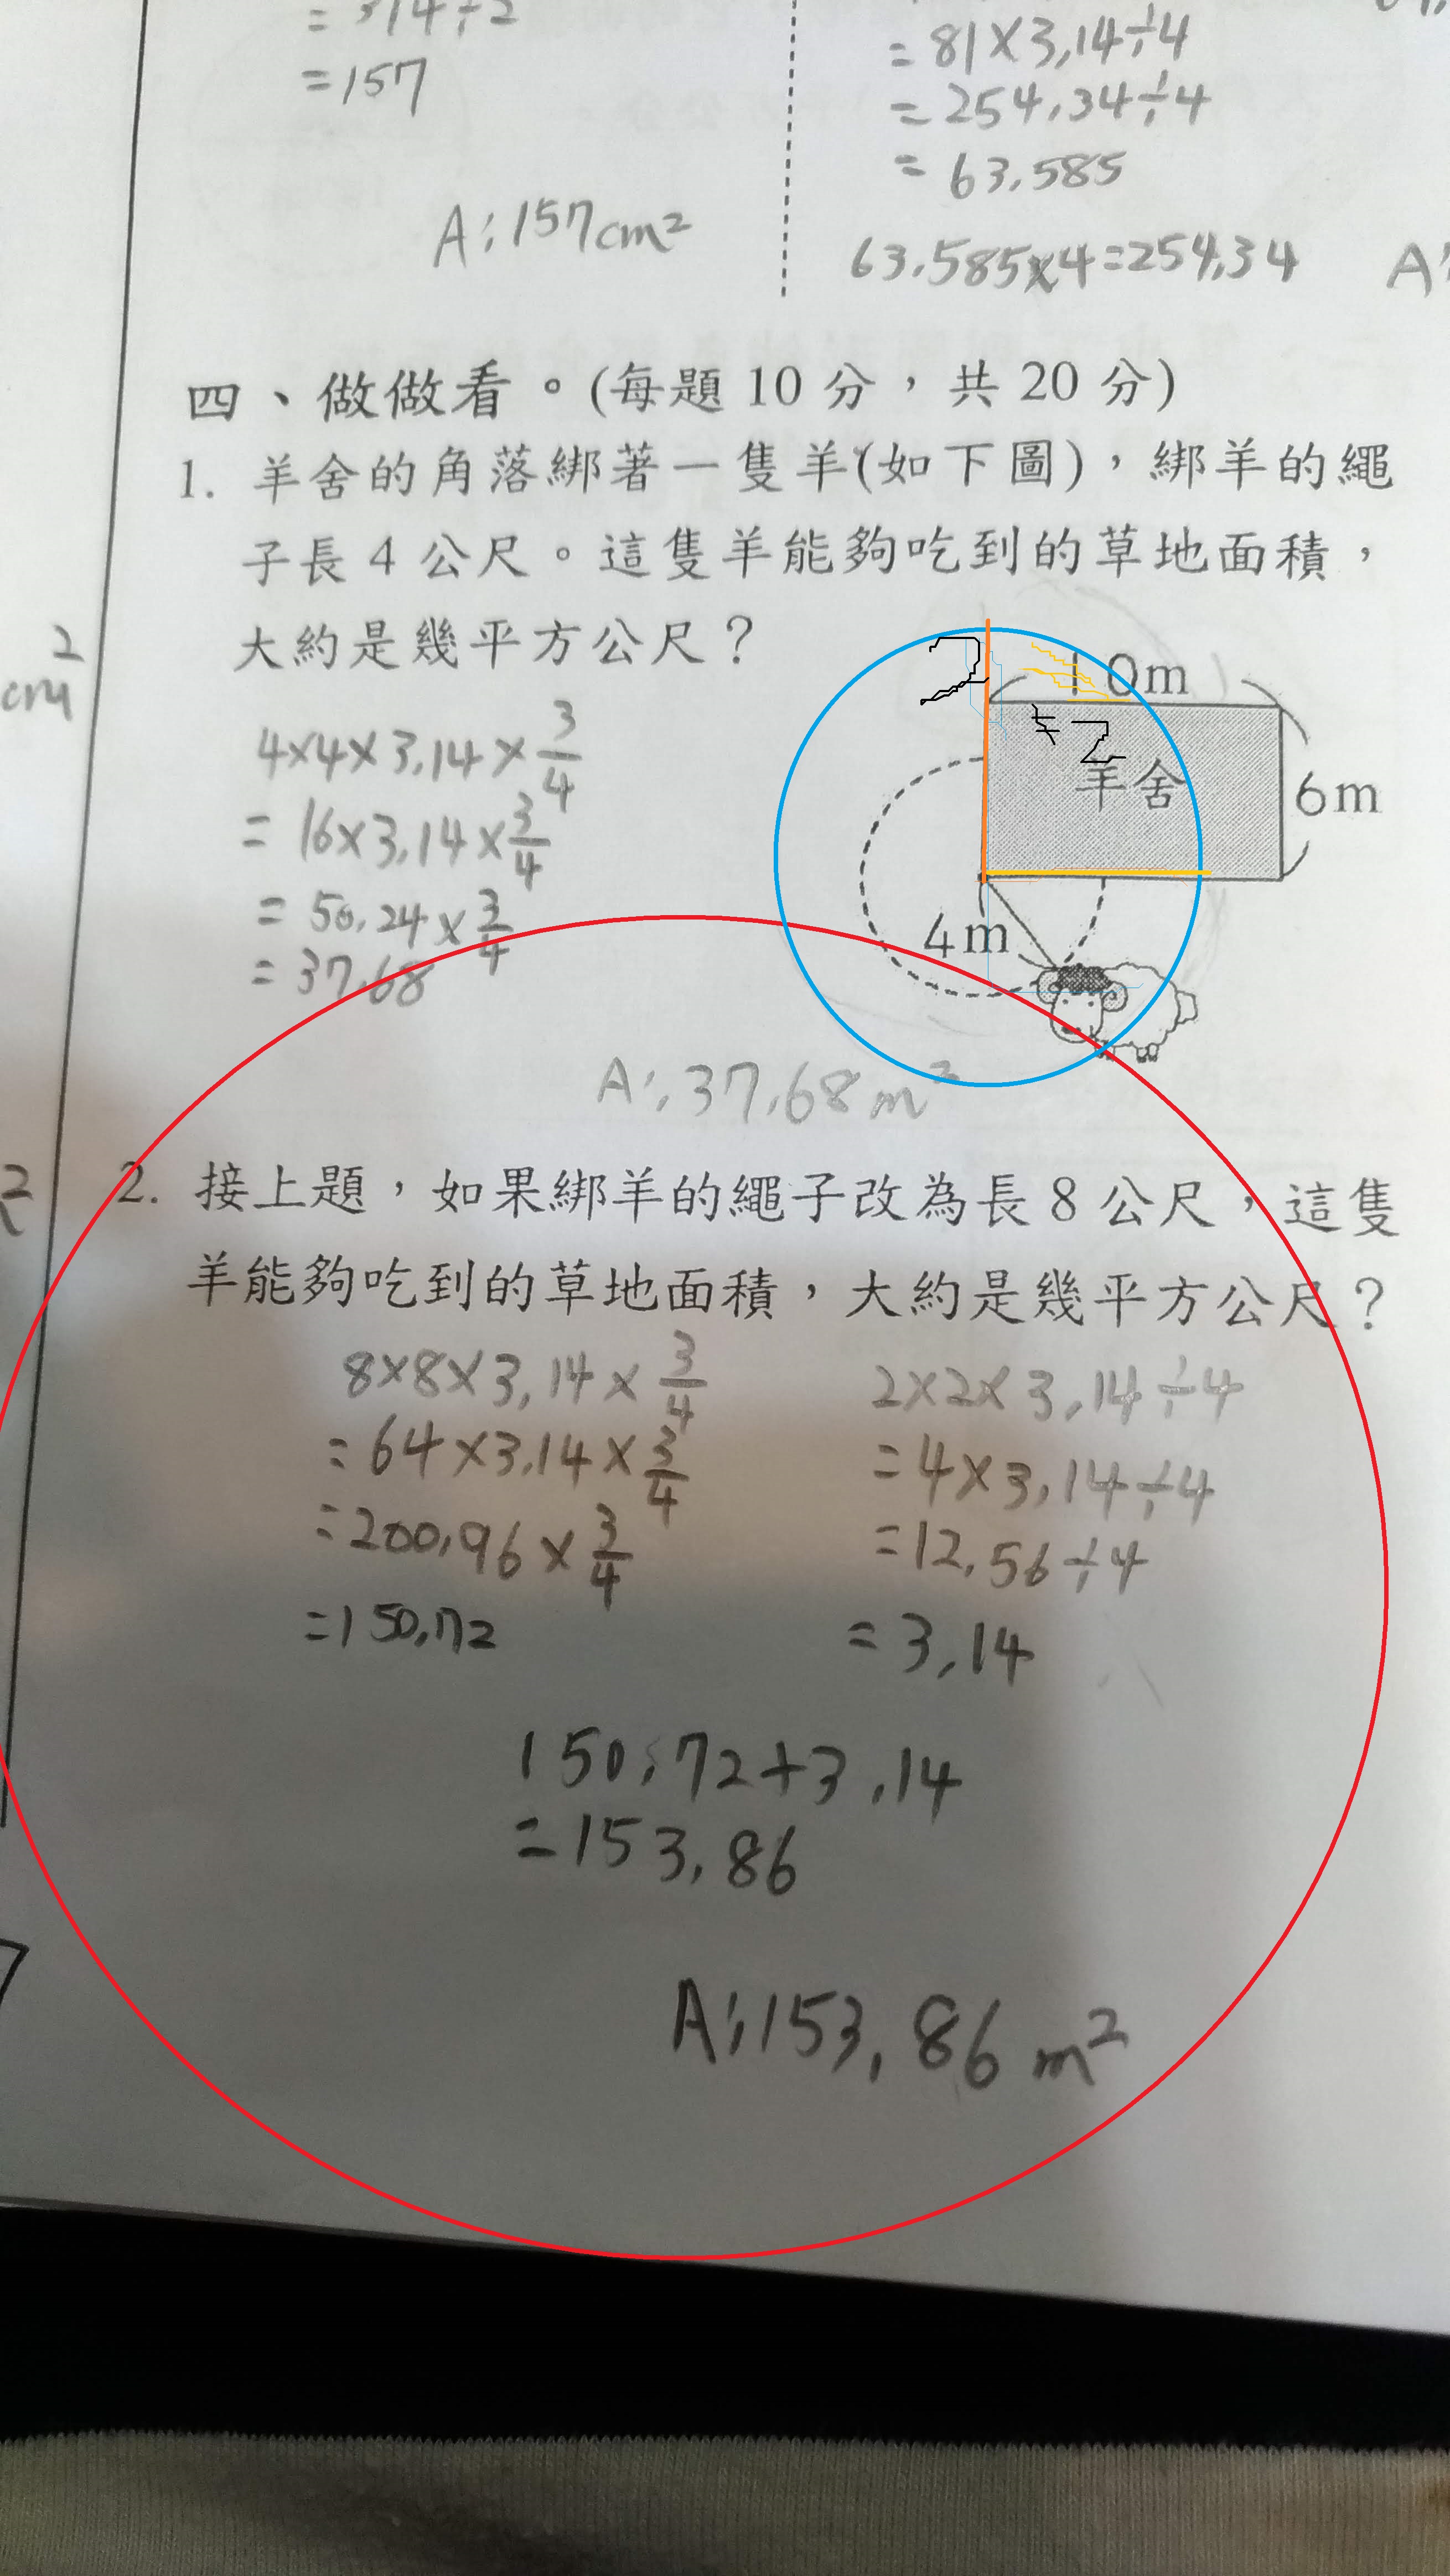 = 314÷2
= 157
A:157cm²
= 81×3.14÷4
= 254.34÷4
= 63.585
63.585×4=254.34
A:
四、做做看。(每題10分,共20分)
1. 羊舍的角落綁著一隻羊(如下圖),綁羊的繩
子長4公尺。這隻羊能夠吃到的草地面積,
大約是幾平方公尺?
2
cm
4×4×3.14×3/4
= 16×3.14×3/4
= 50.24×3/4
= 37.68
A:37.68m²
2
10m
≠2
羊舍
6m
4m
2
2. 接上題,如果綁羊的繩子改為長8公尺,這隻
羊能夠吃到的草地面積,大約是幾平方公尺?
8×8×3.14×3/4
=64×3.14×3/4
=200.96×3/4
=150.72
2×2×3.14÷4
=4×3.14÷4
=12.56÷4
=3.14
150.72+3.14
=153.86
A:153.86m²